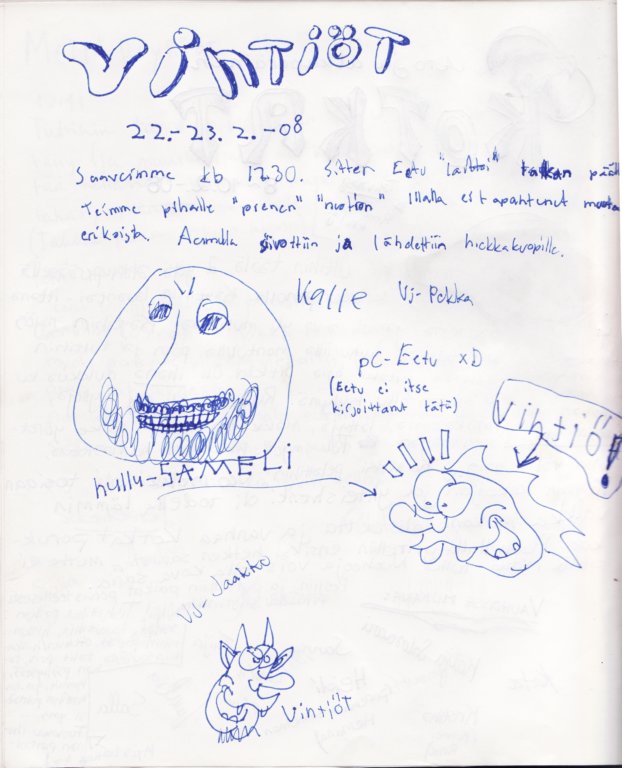 VintiÖT
22.-23.2.-08
Saavuimme klo 17.30. Sitten Eetu "laittoi" takan pääl
Teimme pihalle "pienen" "nuotion" Illalla ei tapahtunut muuta
erikoista. Aamulla siivottiin ja lähdettiin hiekkakuopille.
Kalle Vj-Pekka
pC-Eetu xD
(Eetu ei itse
kirjoittanut tätä)
Vihtiö!
hullu-SAMELi
Vj-Jaakko
Vintiöt